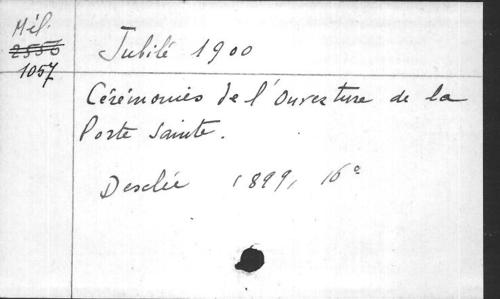 Mél.
2556
1057
Jubilé 1900
Cérémonies de l'Ouverture de la
Porte Sainte.
Desclée 1899, 16°